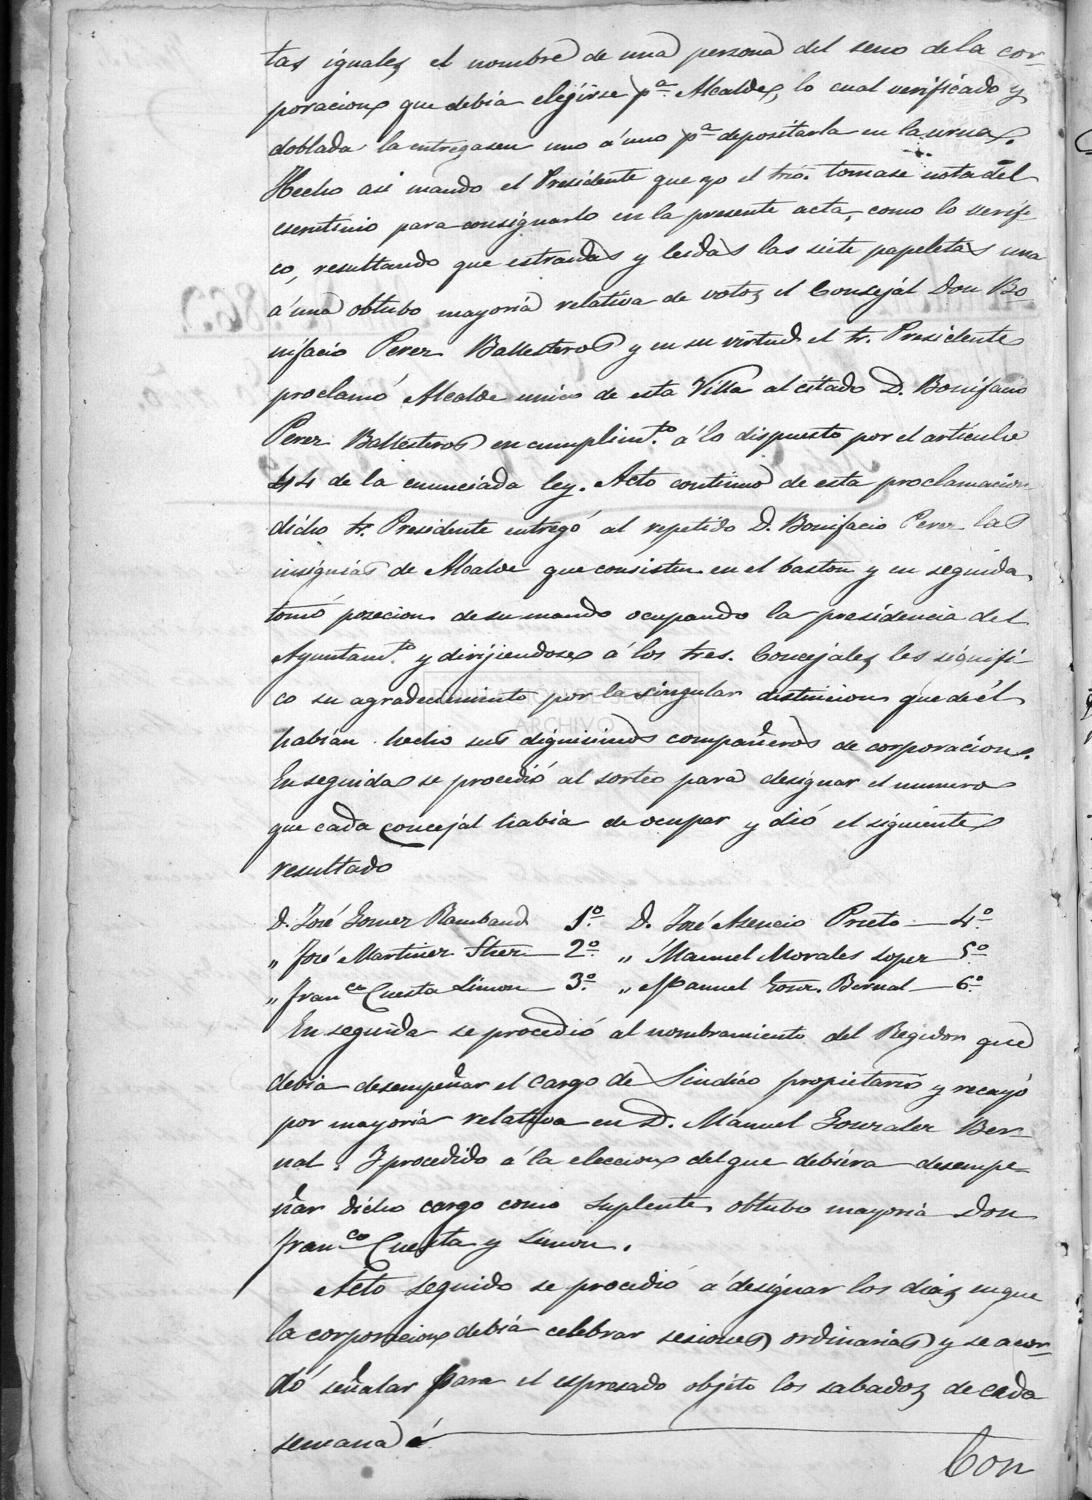 tas iguales el nombre de una persona del seno de la cor-
poracion que debia elejirse pª Alcalde, lo cual verificado y
doblada la entregasen uno á uno pª depositarla en la urna.
Hecho asi mando el Presidente que yo el Srio. tomase nota del
escrutinio para consignarlo en la presente acta, como lo verifi-
co, resultando que estraidas y leidas las siete papeletas una
á una obtubo mayoria relativa de votos el Consejál Don Bo-
nifacio Perez Ballesteros y en su virtud el Sr. Presidente
proclamó Alcalde unico de esta Villa al citado D. Bonifacio
Perez Ballesteros en cumplimto. á lo dispuesto por el articulo
44 de la enunciada ley. Acto continuo de esta proclamacion
dicho Sr. Presidente entregó al repetido D. Bonifacio Perez las
insignias de Alcalde que consisten en el baston y en seguida
tomó pozecion de su mando ocupando la presidencia del
Ayuntamto. y dirijiendose á los Sres. Concejales les signifi-
co su agradecimiento por la singular distincion que de él
habian hecho sus dignisimos compañeros de corporacion.
En seguida se procedió al sorteo para designar el numero
que cada concejal habia de ocupar y dió el siguiente
resultado
D. José Gomez Rambaud 1º. D. José Asencio Prieto 4º.
„ José Martinez 2º. „ Manuel Morales Lopez 5º.
„ Franco Cuesta Simon 3º. „ Manuel Gonz. Bernal 6º.
En seguida se procedió al nombramiento del Regidor que
debia desempeñar el cargo de Sindico propietario y recayó
por mayoria relativa en D. Manuel Gonzalez Ber-
nal. Y procedido á la eleccion del que debiera desempe-
ñar dicho cargo como Suplente obtubo mayoria Don
Franco Cuesta y Simon.
Acto seguido se procedió á designar los dias en que
la corporacion debia celebrar sesiones ordinarias y se acor-
dó señalar para el espresado objeto los sabados de cada
semana á
Con
ARCHIVO